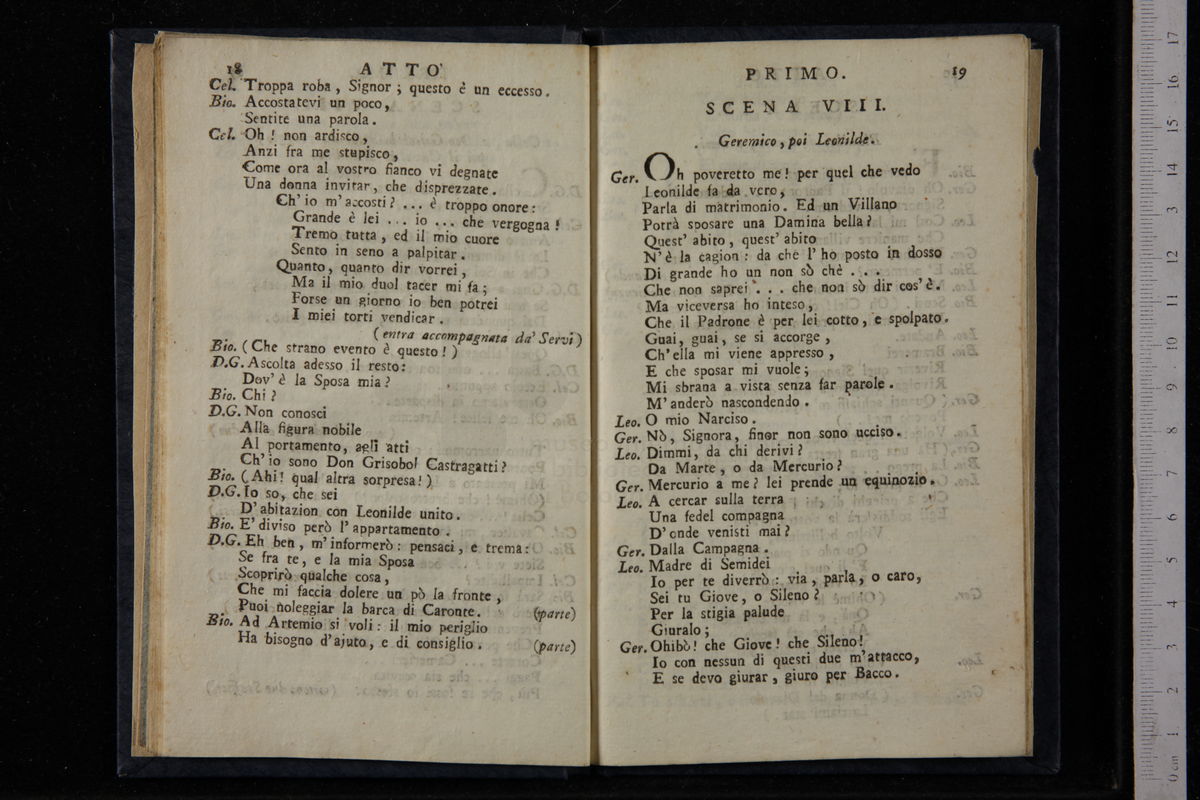 18 ATTO
Cel. Troppa roba, Signor; questo è un eccesso.
Bio. Accostatevi un poco,
Sentite una parola.
Cel. Oh! non ardisco,
Anzi fra me stupisco,
Come ora al vostro fianco vi degnate
Una donna invitar, che disprezzate.
Ch' io m' accosti? ... è troppo onore:
Grande è lei ... io ... che vergogna!
Tremo tutta, ed il mio cuore
Sento in seno a palpitar.
Quanto, quanto dir vorrei,
Ma il mio duol tacer mi fa;
Forse un giorno io ben potrei
I miei torti vendicar.
(entra accompagnata da' Servi)
Bio. (Che strano evento è questo!)
D.G. Ascolta adesso il resto:
Dov' è la Sposa mia?
Bio. Chi?
D.G. Non conosci
Alla figura nobile
Al portamento, agli atti
Ch' io sono Don Grisobol Castragatti?
Bio. (Ahi! qual altra sorpresa!)
D.G. Io so, che sei
D' abitazion con Leonilde unito.
Bio. E' diviso però l' appartamento.
D.G. Eh ben, m' informerò: pensaci, e trema:
Se fra te, e la mia Sposa
Scoprirò qualche cosa,
Che mi faccia dolere un pò la fronte,
Puoi noleggiar la barca di Caronte. (parte)
Bio. Ad Artemio si voli: il mio periglio
Ha bisogno d' ajuto, e di consiglio. (parte)
PRIMO. 19
SCENA VIII.
Geremico, poi Leonilde.
Ger. Oh poveretto me! per quel che vedo
Leonilde fa da vero,
Parla di matrimonio. Ed un Villano
Potrà sposare una Damina bella?
Quest' abito, quest' abito
N' è la cagion: da che l' ho posto in dosso
Di grande ho un non sò chè ...
Che non saprei ... che non sò dir cos' è.
Ma viceversa ho inteso,
Che il Padrone è per lei cotto, e spolpato.
Guai, guai, se si accorge,
Ch' ella mi viene appresso,
E che sposar mi vuole;
Mi sbrana a vista senza far parole.
M' anderò nascondendo.
Leo. O mio Narciso.
Ger. Nò, Signora, finor non sono ucciso.
Leo. Dimmi, da chi derivi?
Da Marte, o da Mercurio?
Ger. Mercurio a me? lei prende un equinozio.
Leo. A cercar sulla terra
Una fedel compagna
D' onde venisti mai?
Ger. Dalla Campagna.
Leo. Madre di Semidei
Io per te diverrò: via, parla, o caro,
Sei tu Giove, o Sileno?
Per la stigia palude
Giuralo;
Ger. Ohibò! che Giove! che Sileno!
Io con nessun di questi due m' attacco,
E se devo giurar, giuro per Bacco.
0 cm 1 2 3 4 5 6 7 8 9 10 11 12 13 14 15 16 17